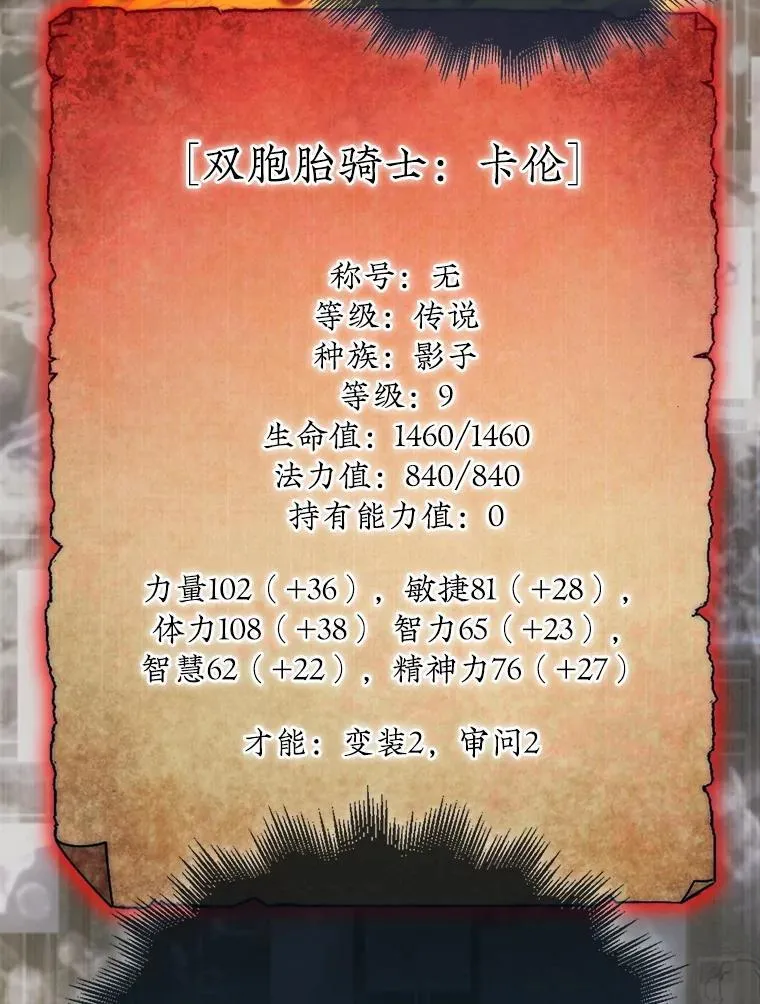 [双胞胎骑士：卡伦]
称号：无
等级：传说
种族：影子
等级：9
生命值：1460/1460
法力值：840/840
持有能力值：0
力量102（+36），敏捷81（+28），
体力108（+38） 智力65（+23），
智慧62（+22），精神力76（+27）
才能：变装2，审问2